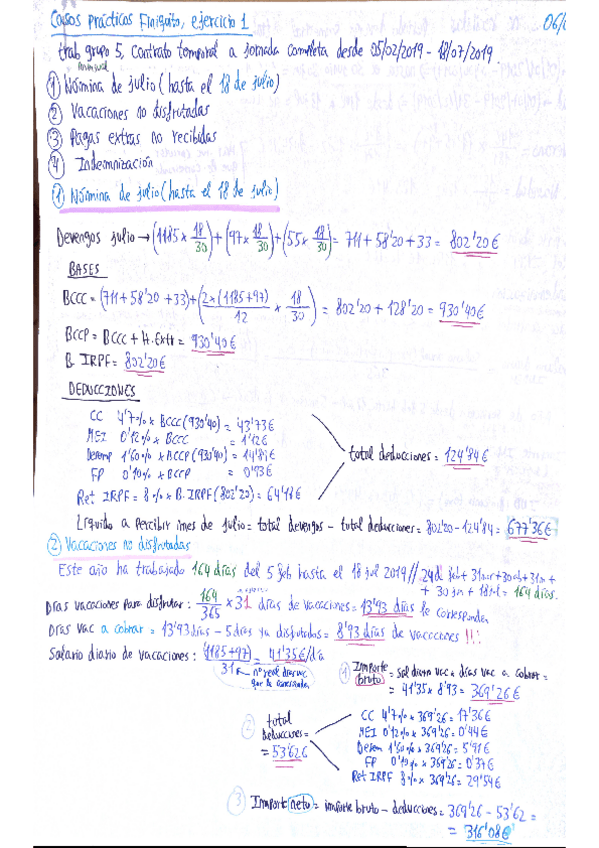 Casos prácticos Finiquito, ejercicio 1 06/0
trab grupo 5, contrato temporal a jornada completa desde 05/02/2019 - 18/07/2019.
mensual
① Nómina de julio (hasta el 18 de julio)
② Vacaciones no disfrutadas
③ Pagas extras no recibidas
④ Indemnización
① Nómina de julio (hasta el 18 de julio)
Devengos julio → (1185 x 18/30) + (97 x 18/30) + (55 x 18/30) = 711 + 58'20 + 33 = 802'20€
BASES
BCCC = (711 + 58'20 + 33) + (2 x (1185+97)/12 x 18/30) = 802'20 + 128'20 = 930'40€
BCCP = BCCC + H.Extr = 930'40€
B. IRPF = 802'20€
DEDUCCIONES
CC 4'7% x BCCC (930'40) = 43'73€
MEI 0'12% x BCCC = 1'12€
Desemp 1'60% x BCCP (930'40) = 14'89€
FP 0'10% x BCCP = 0'93€
Ret IRPF = 8% x B.IRPF (802'20) = 64'18€
total deducciones = 124'84€
Líquido a percibir mes de julio = total devengos - total deducciones = 802'20 - 124'84 = 677'36€
② Vacaciones no disfrutadas
Este año ha trabajado 164 días del 5 feb hasta el 18 jul 2019 // 24d feb + 31mar + 30ab + 31m +
+ 30jn + 18jul = 164 días.
Días vacaciones para disfrutar: 164/365 x 31 días de vacaciones = 13'93 días le corresponden
Días vac a cobrar = 13'93 días - 5 días ya disfrutados = 8'93 días de vacaciones !!!
Salario diario de vacaciones: (1185+97)/31 = 41'35€/día
nº real días vac que le corresponden
① Importe bruto = sal diario vac x días vac a cobrar =
= 41'35 x 8'93 = 369'26€
② total deducciones = = 53'62€
CC 4'7% x 369'26 = 17'36€
MEI 0'12% x 369'26 = 0'44€
Desem 1'60% x 369'26 = 5'91€
FP 0'10% x 369'26 = 0'37€
Ret IRPF 8% x 369'26 = 29'54€
③ Importe neto = importe bruto - deducciones = 369'26 - 53'62 =
= 316'08€